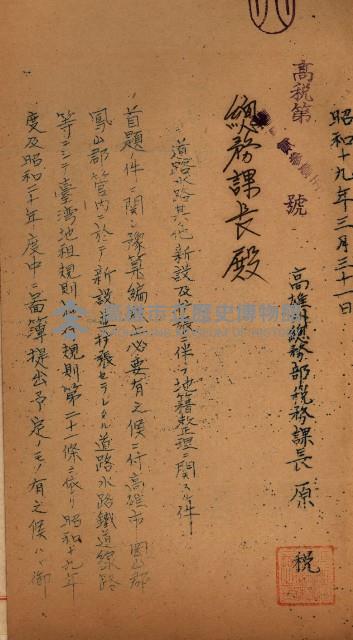 高税第 號
昭和十九年三月三十一日
高雄州總務部税務課長 原 税
總務課長殿
道路水路其ノ他新設及擴張ニ伴フ地籍整理ニ關スル件
首題ノ件ニ關シ豫算編 必要有之候ニ付高雄市 岡山郡
鳳山郡管内ニ於テ新設並擴張セラレタル道路水路鐵道線路
等ニシテ臺灣地租規則 規則第二十一條ニ依リ昭和十九年
度及昭和二十年度中ニ圖簿提出予定ノモノ有之候ハヾ御
高雄市立歷史博物館
KAOHSIUNG MUSEUM OF HISTORY